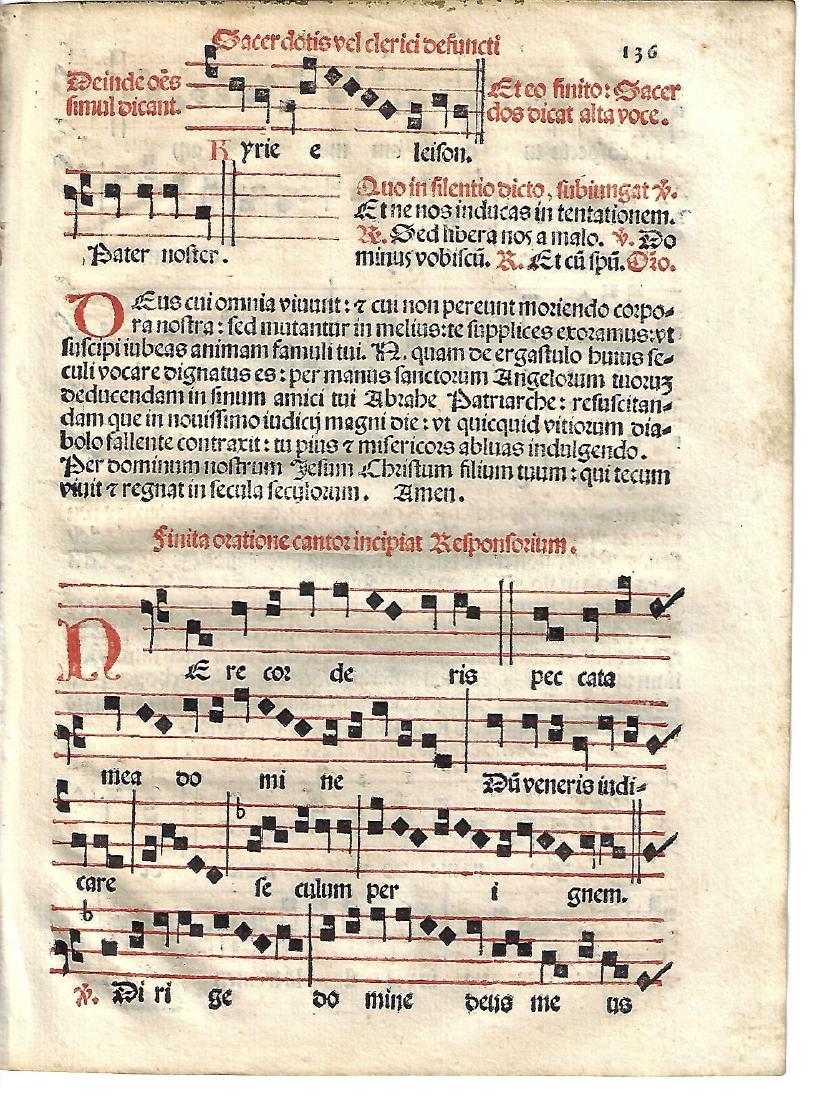 Sacerdotis vel clerici defuncti 136
Deinde oēs
simul dicant.
Et eo finito: Sacer
dos dicat alta voce.
K yrie e leison.
Quo in silentio dicto, subiungat ℣.
Et ne nos inducas in tentationem.
℟. Sed libera nos a malo. ℣. Do
Pater noster.
minus vobiscū. ℟. Et cū spū. Oro.
DEus cui omnia viuunt: ⁊ cui non pereunt moriendo corpo-
ra nostra: sed mutantur in melius: te supplices exoramus: vt
suscipi iubeas animam famuli tui. N. quam de ergastulo huius se-
culi vocare dignatus es: per manus sanctorum Angelorum tuoruꝫ
deducendam in sinum amici tui Abrahe Patriarche: resuscitan-
dam que in nouissimo iudicij magni die: vt quicquid vitiorum dia-
bolo fallente contraxit: tu pius ⁊ misericors abluas indulgendo.
Per dominum nostrum Jesum Christum filium tuum: qui tecum
viuit ⁊ regnat in secula seculorum. Amen.
Finita oratione cantor incipiat Responsorium.
NE re cor de ris pec cata
mea do mi ne Dū veneris iudi-
care se culum per i gnem.
℣. Di ri ge do mine deus me us